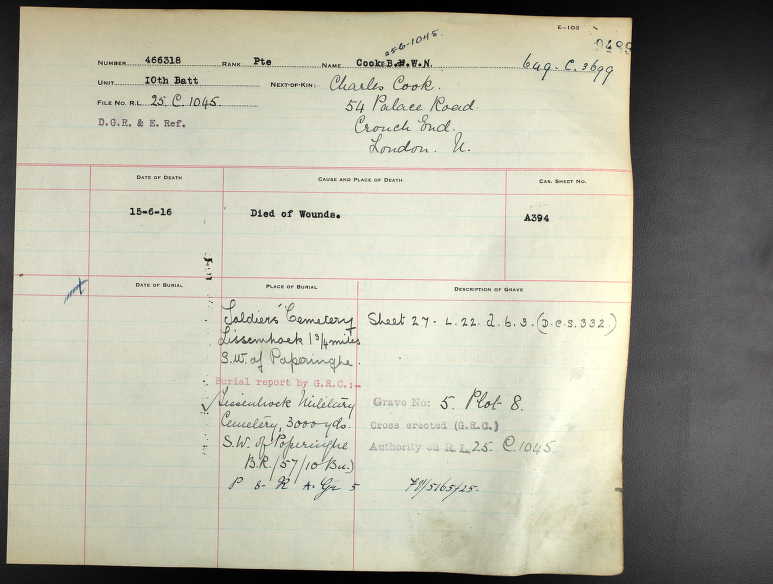 E-103
256-1045.
NUMBER 466318 RANK Pte NAME Cook B.H.W.N. 649-C.3699
UNIT 10th Batt NEXT-OF-KIN: Charles Cook.
FILE NO. R.L. 25. C. 1045. 54 Palace Road.
D.G.R. & E. Ref. Crouch End.
London. N.
DATE OF DEATH CAUSE AND PLACE OF DEATH CAS. SHEET NO.
15-6-16 Died of Wounds. A394
DATE OF BURIAL PLACE OF BURIAL DESCRIPTION OF GRAVE
Soldiers' Cemetery Sheet 27. L. 22. d. 6. 3. (D.C.S. 332.)
Lissenhoek 1 3/4 miles
S.W. of Poperinghe.
Burial report by G.R.C.:-
Lissenhock Military Grave No: 5. Plot 8.
Cemetery, 3000 yds. Cross erected (G.R.C.)
S.W. of Poperinghe Authority on R.L. 25. C. 1045
B.R. (57/10 Bu.)
P 8. R A. Gr 5